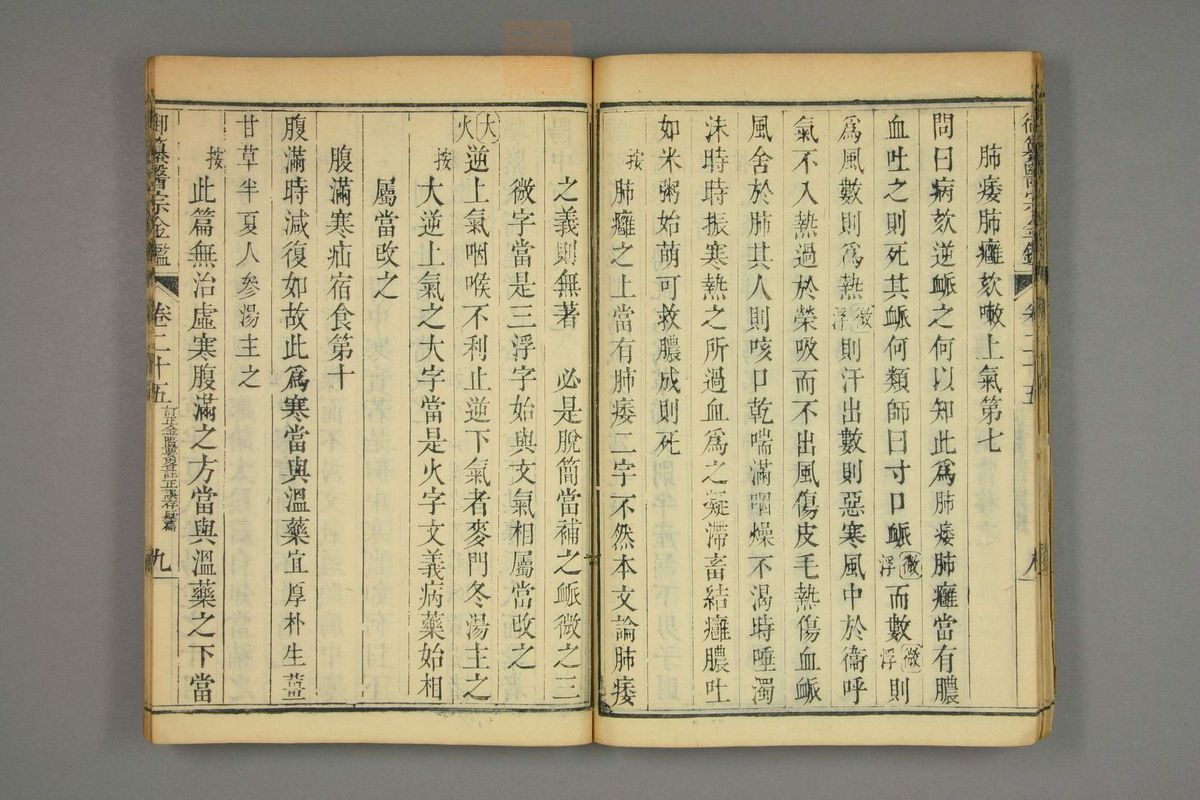 肺痿肺癰欬嗽上氣第七
問曰病欬逆䘑之何以知此爲肺癰當有膿
血吐之則死其䘑何類師曰寸口䘑微浮而數微浮則
爲風數則爲熱微浮則汗出數則惡寒風中於衞呼
氣不入熱過於榮吸而不出風傷皮毛熱傷血䘑
風舍於肺其人則咳口乾喘滿咽燥不渴時唾濁
沫時時振寒熱之所過血爲之凝滯畜結癰膿吐
如米粥始萌可救膿成則死
按肺癰之上當有肺痿二字不然本文論肺痿
之義則無著 必是脫簡當補之䘑微之三
微字當是三浮字始與文氣相屬當改之
大火逆上氣咽喉不利止逆下氣者麥門冬湯主之
按大逆上氣之大字當是火字文義病藥始相
屬當改之
腹滿寒疝宿食第十
腹滿時減復如故此爲寒當與溫藥宜厚朴生薑
甘草半夏人參湯主之
按此篇無治虛寒腹滿之方當與溫藥之下當
御纂醫宗金鑑 卷二十五 訂正金匱要畧註正誤存疑篇 九